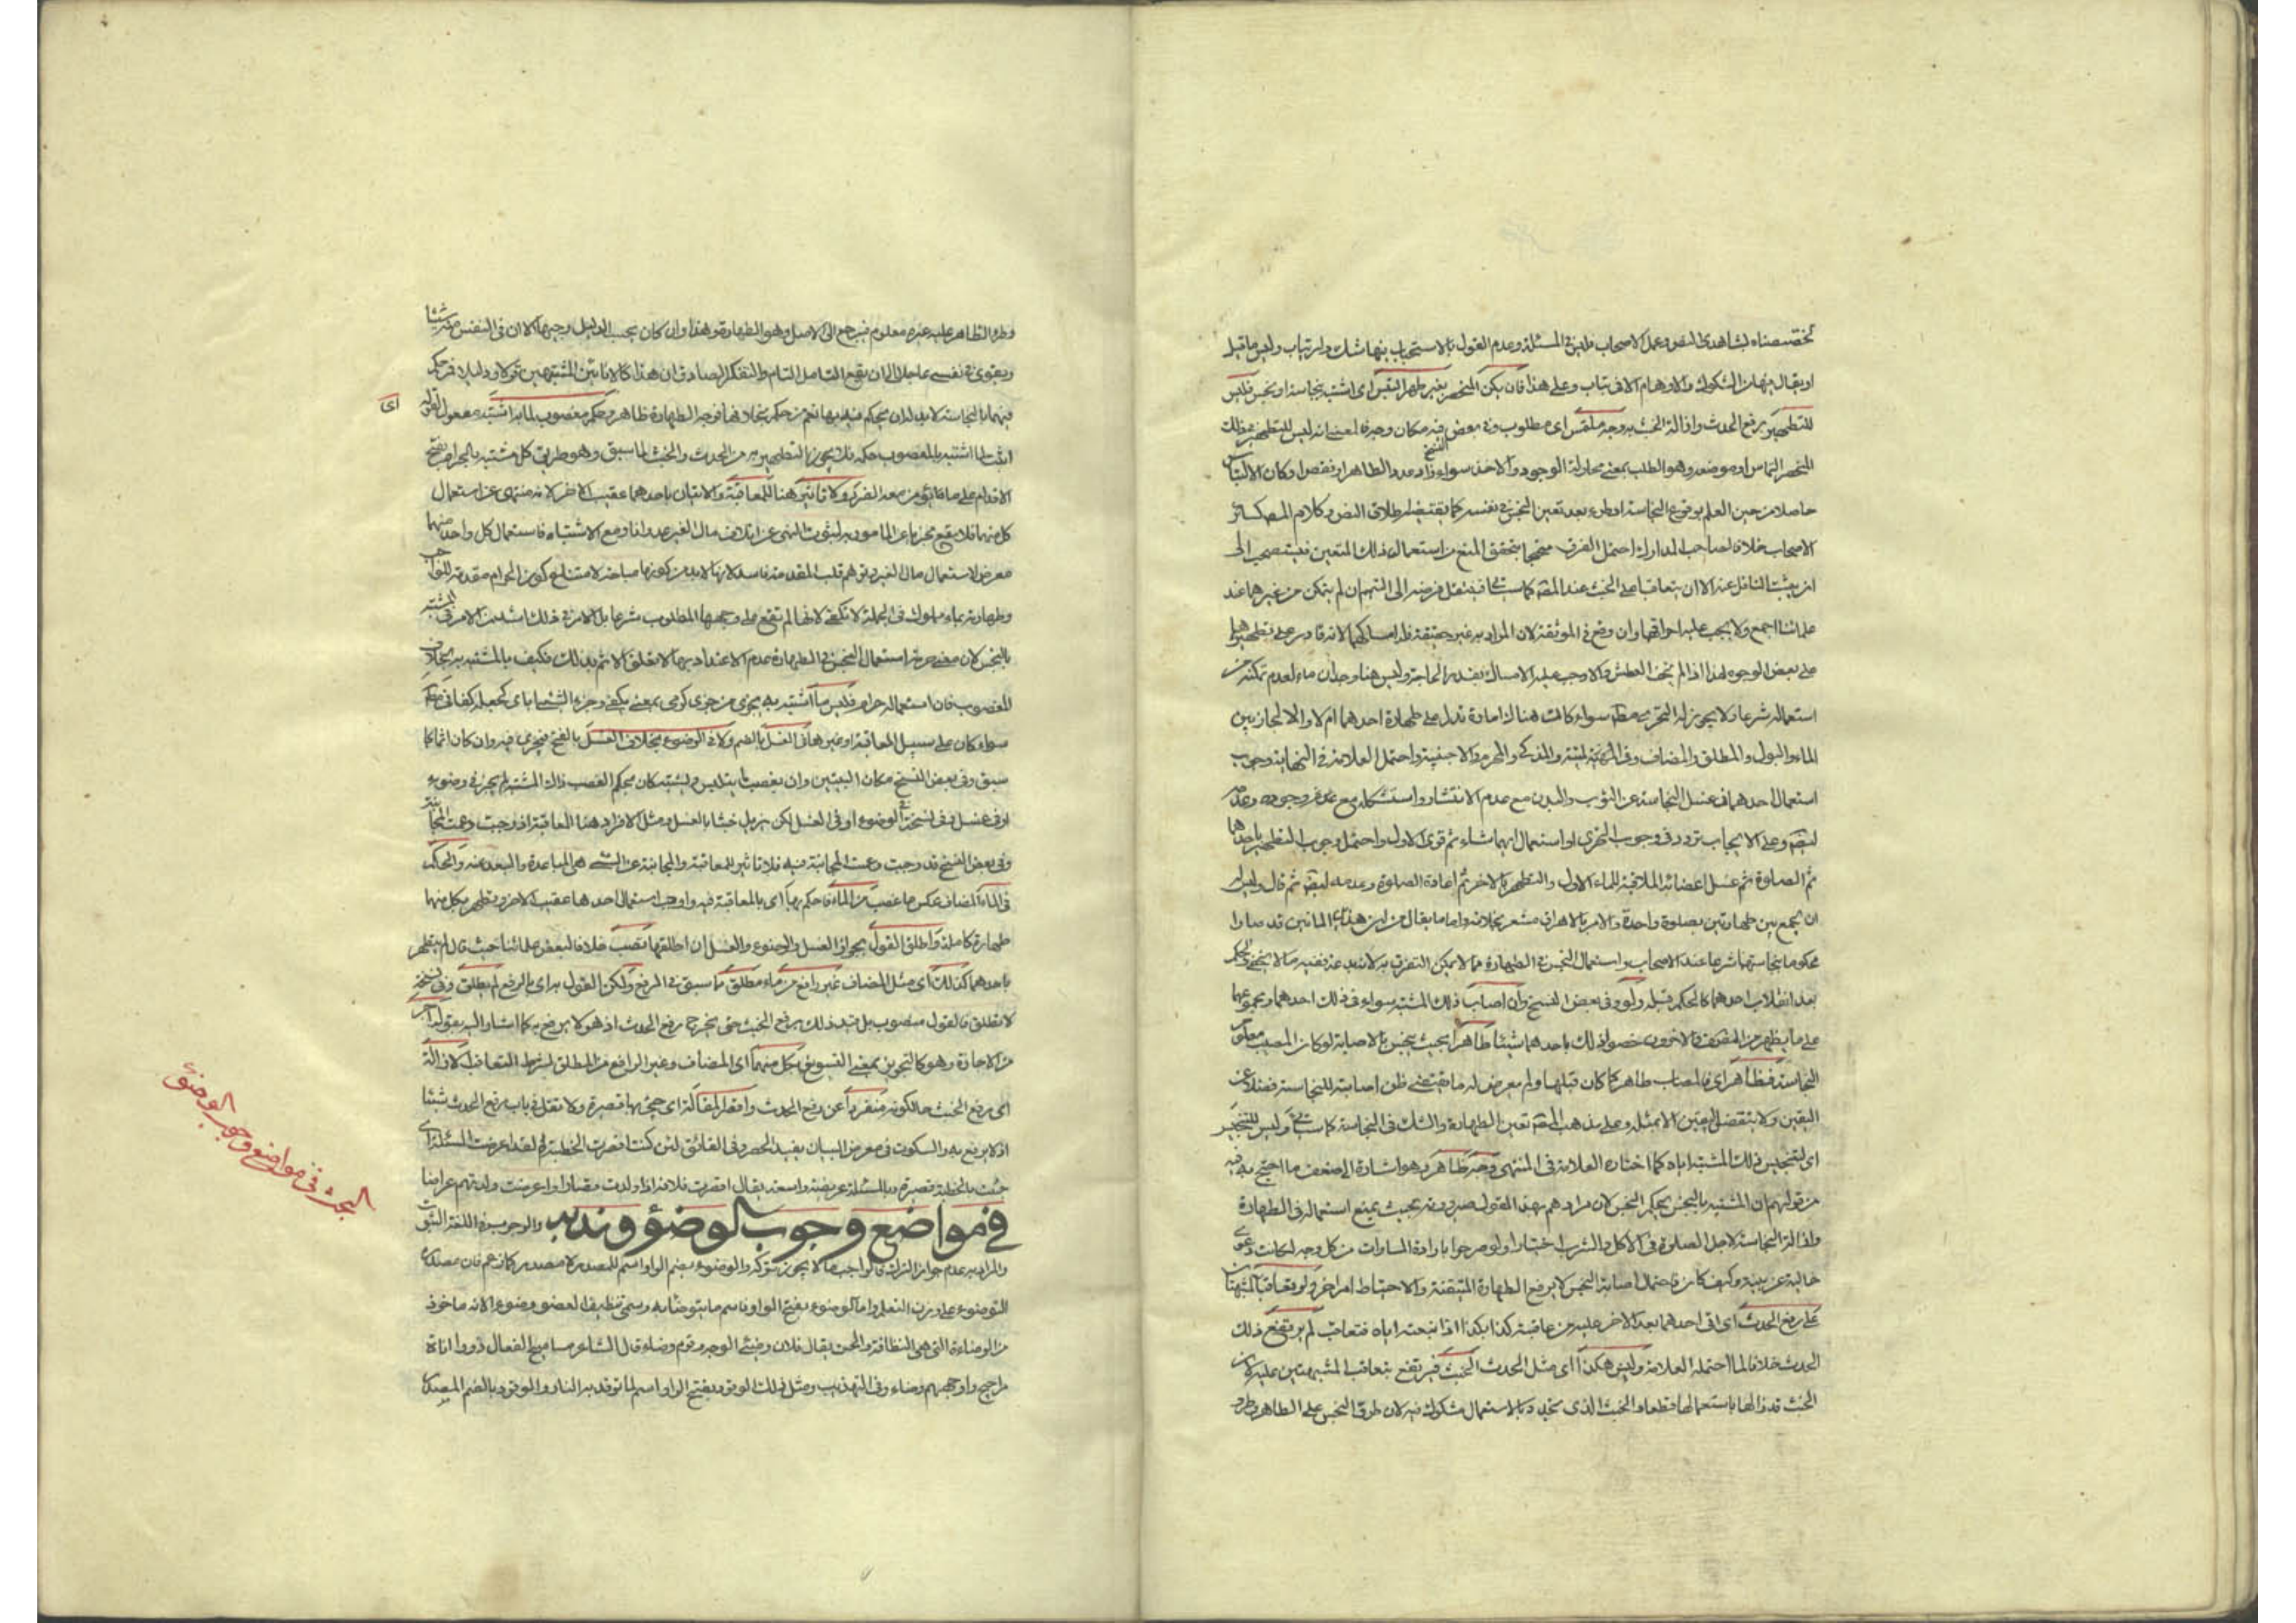 تخصصناه لشاهدى النص وعمل الاصحاب فليس في المسئلة وعدم القول بالاستحباب بنهاشك ولا ارتياب وليس ما قبل
او يقال من الشكوك والاوهام الا في تباب وعلى هذا فان يكن المنحصر بغير طهر التبس اى اشتبه بنجاسة او نجس فليس
للتطهير برفع الحدث وازالة الخبث به وجه ملتمس اى مطلوب وفي بعض النسخ فيه مكان وجه فالمعنى انه ليس للتطهير بذلك
المنحصر التماس او موضعه وهو الطلب بمعنى محاولة الوجود والاخذ سواء زاد عدد الطاهر او نقص او كان الالتباس
حاصلا من حين العلم بوقوع النجاسة او طرء بعد تعين النجس في نفسه كما يقتضيه اطلاق النص وكلام المصـ كسائر
الاصحاب خلافا لصاحب المدارك احتمل الفرق محتجا بتحقق المنع من استعمال ذلك المتعين فيستصحب الى
ان يثبت الناقل عنه الا ان يتعاقبا على الخبث عند المصـ كما سيأتي فينتقل فرضه الى التيمم ان لم يتمكن من غيرهما عند
علمائنا اجمع ولا يجب عليه اهراقهما وان وقع في الموثقة لان المراد به غير حقيقته فله امساكهما لانه قادر على تطهيرهما
على بعض الوجوه هذا اذا لم يخف العطش والا وجب عليه الامساك بقدر الحاجة وليس هنا وجدان ماء لعدم تمكنه من
استعماله شرعا ولا يجوز له التحرى مطلقا سواء كانت هناك امارة تدل على طهارة احدهما ام لا والا لجاز بين
الماء والبول والمطلق والمضاف وفي الميتة والمذكى والمحرم والاجنبية واحتمل العلامة في النهاية وجوب
استعمال احدهما في غسل النجاسة عن الثوب والبدن مع عدم الانتشار واستشكله مع عدم وجوده
وعلى الايجاب تردد في وجوب التحرى او استعمال ايهما شاء ثم قوى الاول واحتمل وجوب التطهير باحدهما
ثم الصلوة ثم غسل اعضائه الملاقية للماء الاول والتطهير بالاخر ثم اعادة الصلوة وعدمه ثم قال وليس له
ان يجمع بين طهارتين بصلوة واحدة والامر بالاهراق مشعر بخلافه واما ما يقال من ان هذين المائين قد صارا
محكوما بنجاستهما شرعا عند الاصحاب واستعمال النجس في الطهارة مما لا يمكن التقرب به لانه بدعة ففيه ما لا يخفى والحكم
بعد انقلاب احدهما كالحكم قبله ولو وفي بعض النسخ وان اصاب ذلك المشتبه سواء في ذلك احدهما ومجموعهما
على ما يظهر من المصـ خصوا ذلك باحدهما شيئا طاهرا بحيث ينجس بالاصابة لو كان المصيب معلوم
النجاسة فطاهر اى فالمصاب طاهر كما كان قبلها ولم يعرض له ما يقتضى ظن اصابته للنجاسة فضلا عن
اليقين ولا ينقض اليقين الا بمثله وعلى مذهب المصـ تعين الطهارة والشك في النجاسة كما سيأتي وليس للتنجيس
اى لتنجيس ذلك المشتبه اياه كما اختاره العلامة في المنتهى وجه ظاهر وهو اشارة الى ضعف ما احتج به فيه
من قولهم ان المشتبه بالنجس بحكم النجس لان مرادهم بهذا القول صيرورته بحيث يمنع استعماله في الطهارة
وازالة النجاسة لاجل الصلوة وفي الاكل والشرب اختيارا ولو صرحوا بارادة المساوات من كل وجه لكانت دعوى
خالية عن بينة وكيف كان فاحتمال اصابة النجس لا يرفع الطهارة المتيقنة والاحتياط امر اخر ولو تعاقب المشتبهان
على رفع الحدث اى اتى احدهما بعد الاخر عليه من عاقبت كذا بكذا اذا اتبعته اياه فتعاقب لم يرتفع ذلك
الحدث خلافا لما احتمله العلامة وليس هكذا اى مثل الحدث الخبث فيرتفع بتعاقب المشتبهين عليه لان
الخبث قد زال باستعمالهما قطعا والخبث الذى تجدد بالاستعمال مشكوك فيه لان طرو النجس على الطاهر
وطرو الطاهر عليه غير معلوم فيرجع الى الاصل وهو الطهارة وهذا وان كان بحسب الدليل وجيها الا ان في النفس منه شيئا
ويقوى في نفسى عاجلا الى ان يقع التامل التام والتفكر الصادق ان هذا كالانائين المشتبهين
فيهما بالنجاسة لا بد لمن يحكم فيه بها ثم من حكم بخلافها فوجه الطهارة ظاهر وحكم مغصوب لما به اشتبه مفعول لقوله
اى
اثبت لما اشتبه بالمغصوب حكمه فلا يجوز التطهير به من الحدث والخبث لما سبق وهو طريق كل مشتبه بالحرام
الاقدام على ما فاتى من بعد الفرق ولا تاثير هنا للمعاقبة والاتيان باحدهما عقيب الاخر لانه منهى عن استعمال
كل منهما فلا يقع مجزيا عن المامور به لثبوت النهى عن اتلاف مال الغير عدوانا ومع الاشتباه فاستعمال كل واحد منهما
معرض لاستعمال مال الغير قلت المقدمة فاسدة لانها لا بد من كونها مباحة لامتناع كون الحرام مقدمة للواجب
وطهارته بماء مملوك في الجملة لا تكفى لانها لم تقع على وجهها المطلوب شرعا بل الامر في ذلك اشد من الامر في المشتبه
بالنجس لان معنى حرمة استعمال النجس في الطهارة عدم الاعتداد بها لا تعلق الاثم بذلك فكيف بالمشتبه به بخلاف
المغصوب فان استعماله حرام فليس ما اشتبه به يجزى من جزى كرمى بمعنى يكفى وجزء الشئ اى كجعله كفا في
سواء كان على سبيل المعاقبة او غيرها في الغسل بالضم ولا في الوضوء بخلاف الغسل بالفتح فيجزى فيه وان كان اثما كما
سبق وفي بعض النسخ مكان البيتين وان بغصب ما يتلبس ويشتبه كان بحكم الغصب ذاك المشتبه لم يجز في وضوء
او في غسل وفي نسخة في الوضوء او في الغسل لكن يزيل خبثا بالغسل ومثل الافراد هنا المعاقبة اذ وجبت دعت المجانبة
وفي بعض النسخ قد وجبت دعت المجانبة فيه فلا تاثير للمعاقبة والمجانبة عن الشئ هى المباعدة والبعد عنه والحكم
في الماء المضاف عكس ما غصب من الماء فاحكم بها اى بالمعاقبة فيه واوجب استعمال احدهما عقيب الاخر وتطهر بكل منهما
طهارة كاملة واطلق القول بجواز الغسل والوضوء والغسل ان اطلقها تصب خلافا لبعض علمائنا حيث قال لم يتطهر
باحدهما كذلك اى مثل المضاف غير رافع من ماء مطلق ما سبق في الرفع ولكن القول به اى بالرفع لم يطلق وفي نسخة
لا تطلق فالقول منصوب بل قيد ذلك برفع الخبث حتى يخرج رفع الحدث اذ هو لا يرفع به كما اشار اليه بقوله اجز
من الاجازة وهو كالتجويز بمعنى التسويغ بكل منهما اى المضاف وغير الرافع من المطلق بشرط التعاقب الازالة
اى رفع الخبث حالكونه منفردا عن رفع الحدث واقصر المقالة اى جئ بها قصيرة ولا تقل في باب رفع الحدث شيئا
اذ لا يرفع به والسكوت في معرض البيان يفيد الحصر وفي الفائق لئن كنت اقصرت الخطبة لقد اعرضت المسئلة اى
جئت بالخطبة قصيرة وبالمسئلة عريضة واسعة يقال اقصرت فلانة اذا ولدت قصارا واعرضت ولدتهم عراضا
في مواضع وجوب الوضوء وندبه والوجوب في اللغة الثبوت
البحث في مواضع وجوب الوضوء
والمراد به عدم جواز الترك فالواجب ما لا يجوز تركه والوضوء بضم الواو اسم للمصدر لا مصدر كما زعم فان مصدره
التوضوء على وزن التعلم واما الوضوء بفتح الواو فاسم ما يتوضأ به وسمى تنظيف العضو وضوء لانه ماخوذ
من الوضاءة التى هى النظافة والحسن يقال فلان وضئ الوجه وقوم وضاء قال الشاعر مساميح الفعال ذووا اناة
مراجيح واوجههم وضاء وفي التهذيب ومثل ذلك الوقود بفتح الواو اسم لما توقد به النار والوقود بالضم المصدر